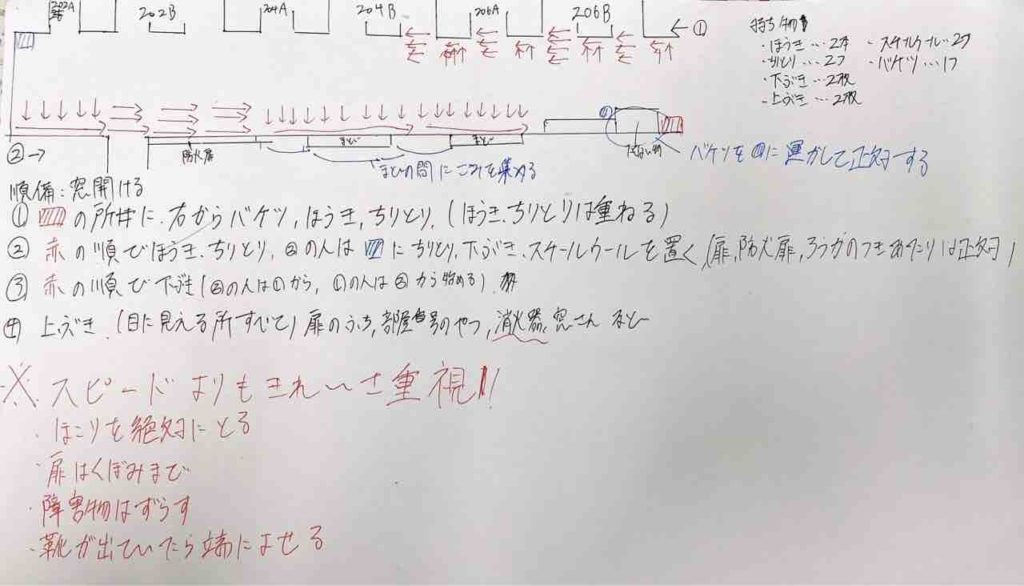 202A
202B
204A
204B
206A
206B
← ①
持ち物
・ほうき…2本
・スチールウール…2つ
・ちりとり…2つ
・バケツ…1つ
・下ぶき…2枚
・上ぶき…2枚
② →
防火扉
まど
まど
まどの間にごみを集める
バケツを に運かして正対する
順備:窓開ける
① の所に、右からバケツ,ほうき,ちりとり.(ほうき、ちりとりは重ねる)
② 赤の順でほうき、ちりとり,②の人は にちりとり,下ぶき、スケールウールを置く,(扉,防火扉,ろうかのつきあたりは正対)
③ 赤の順で下ぶき(②の人は①から,①の人は②から始める)
④ 上ぶき.(目に見える所すべて)扉のふち,部屋番号のやつ,消火器,窓さんなど
※スピードよりもきれいさ重視!!
・ほこりを絶対にとる
・扉はくぼみまで
・障害物はずらす
・靴が出ていたら端によせる